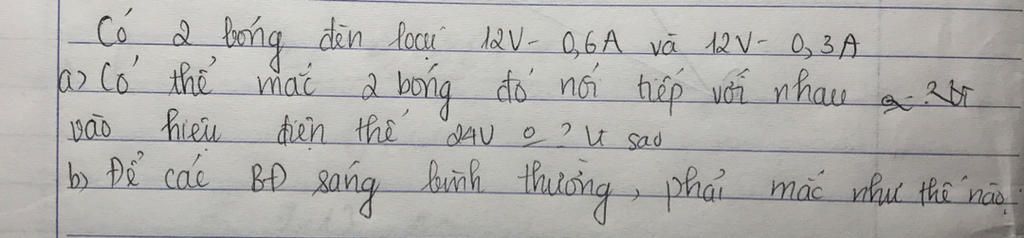 Có 2 bóng đèn loại 12V - 0,6A và 12V - 0,3A
a) Có thể mắc 2 bóng đó nối tiếp với nhau
vào hiệu điện thế 24V o ? Vì sao
b) Để các BĐ sáng bình thường, phải mắc như thế nào.